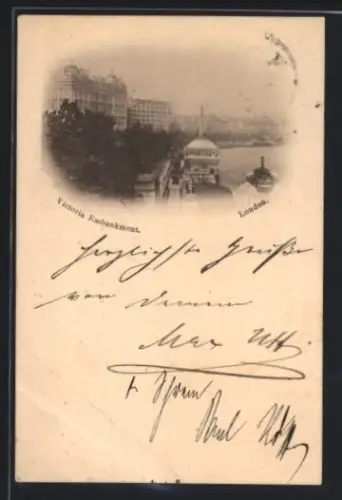 Victoria Embankment.
London.
herzlichste Grüße
von Deinem
Max
Paul